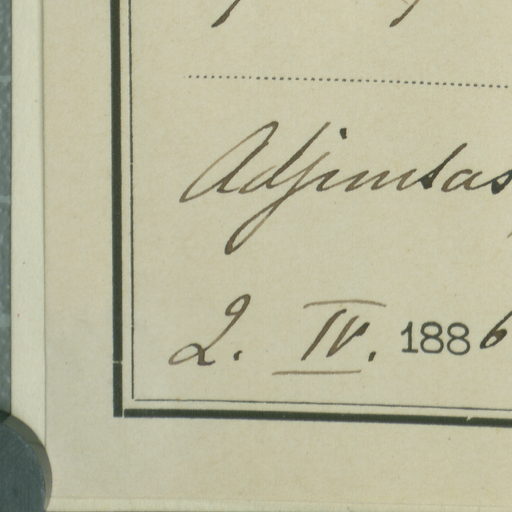 Adjimsas
2. IV. 1886